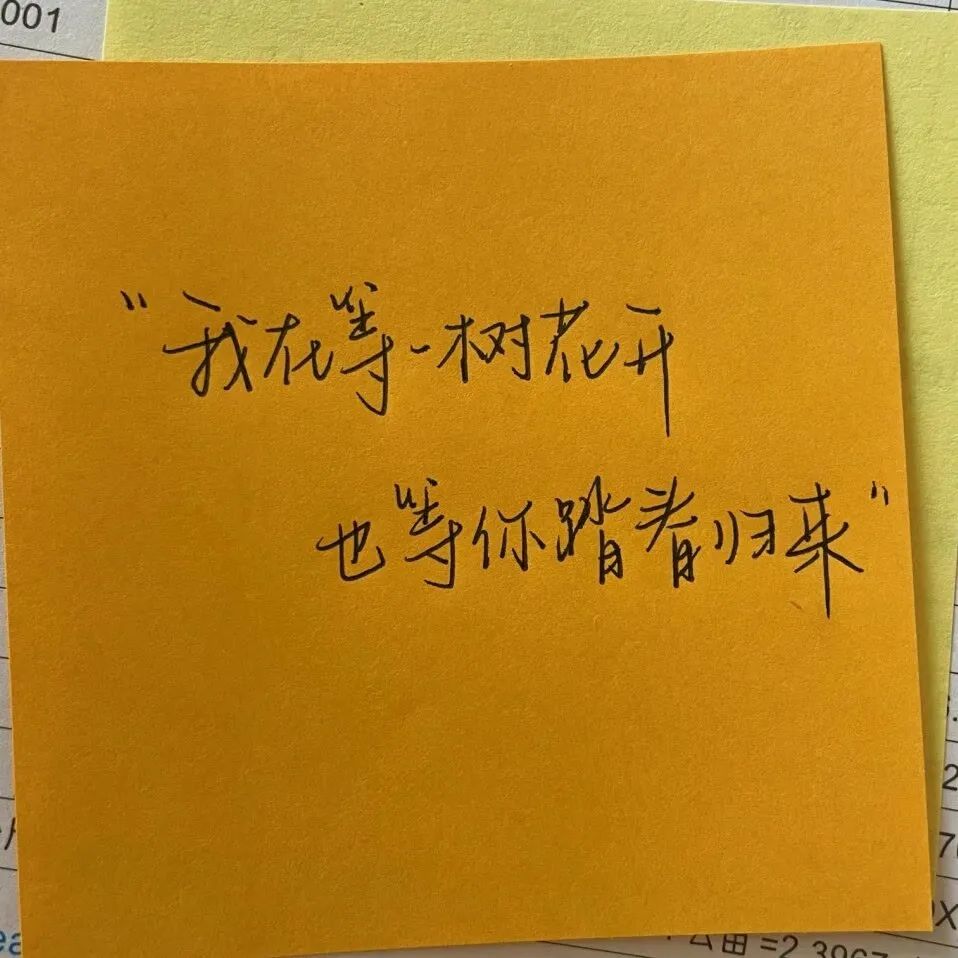 001
“我在等一树花开
也等你踏春归来”